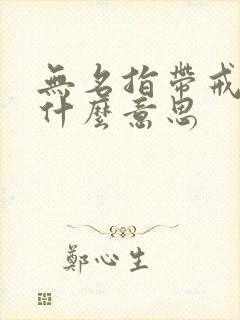 無名指帶戒
什麼意思
鄭心生